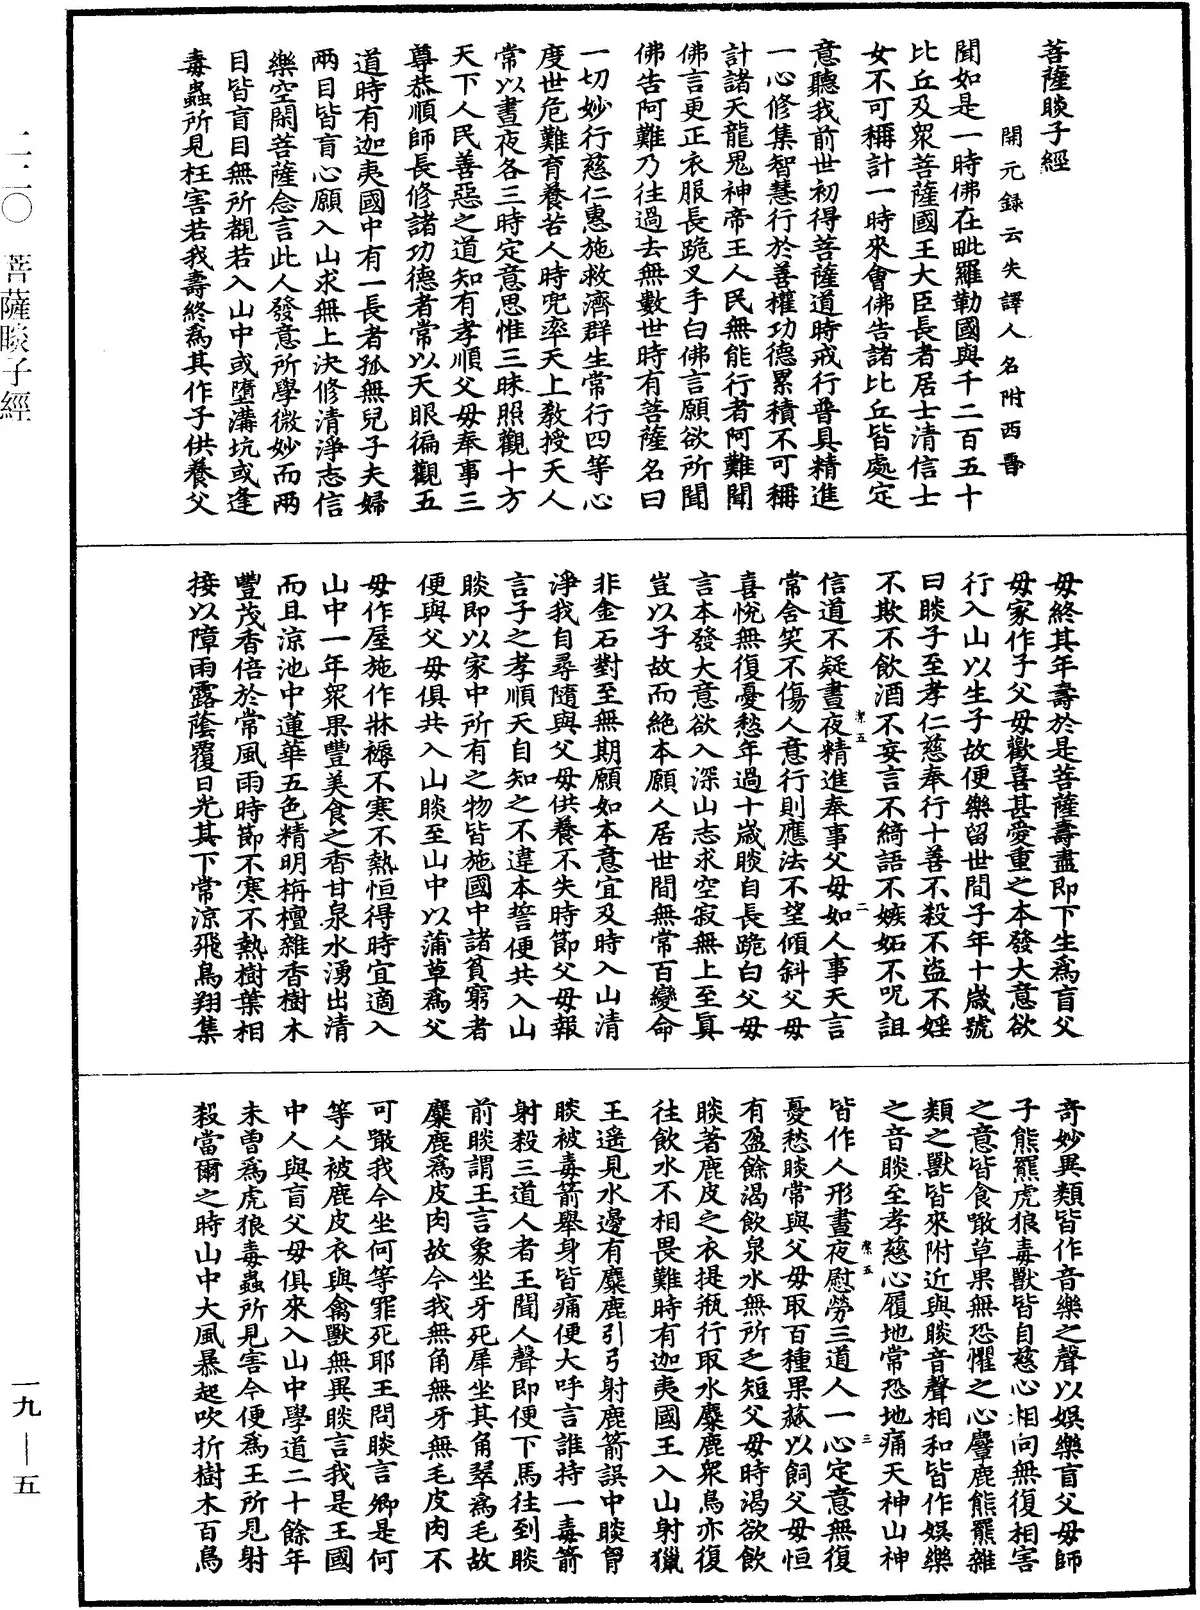 菩薩睒子經
開元錄云失譯人名附西晉
聞如是一時佛在毗羅勒國與千二百五十
比丘及眾菩薩國王大臣長者居士清信士
女不可稱計一時來會佛告諸比丘皆處定
意聽我前世初得菩薩道時戒行普具精進
一心修集智慧行於善權功德累積不可稱
計諸天龍鬼神帝王人民無能行者阿難聞
佛言更正衣服長跪叉手白佛言願欲所聞
佛告阿難乃往過去無數世時有菩薩名曰
一切妙行慈仁惠施救濟群生常行四等心
度世危難育養苦人時兜率天上教授天人
常以晝夜各三時定意思惟三昧照觀十方
天下人民善惡之道知有孝順父毋奉事三
尊恭順師長修諸功德者常以天眼徧觀五
道時有迦夷國中有一長者孤無兒子夫婦
兩目皆盲心願入山求無上決修清淨志信
樂空閑菩薩念言此人發意所學微妙而兩
目皆盲目無所覩若入山中或墮溝坑或逢
毒蟲所見枉害若我壽終爲其作子供養父
毋終其年壽於是菩薩壽盡即下生爲盲父
毋家作子父毋歡喜甚愛重之本發大意欲
行入山以生子故便樂留世間子年十歲號
曰睒子至孝仁慈奉行十善不殺不盜不婬
不欺不飲酒不妄言不綺語不嫉妬不呪詛
信道不疑晝夜精進奉事父毋如人事天言
常含笑不傷人意行則應法不望傾斜父毋
喜悅無復憂愁年過十歲睒自長跪白父毋
言本發大意欲入深山志求空寂無上至眞
豈以子故而絕本願人居世間無常百變命
非金石對至無期願如本意宜及時入山清
淨我自尋隨與父毋供養不失時節父毋報
言子之孝順天自知之不違本誓便共入山
睒即以家中所有之物皆施國中諸貧窮者
便與父毋俱共入山睒至山中以蒲草爲父
毋作屋施作牀褥不寒不熱恒得時宜適入
山中一年眾果豐美食之香甘泉水湧出清
而且涼池中蓮華五色精明栴檀雜香樹木
豐茂香倍於常風雨時節不寒不熱樹葉相
接以障雨露蔭覆日光其下常涼飛鳥翔集
奇妙異類皆作音樂之聲以娛樂盲父毋師
子熊羆虎狼毒獸皆自慈心相向無復相害
之意皆食噉草果無恐懼之心麞鹿熊羆雜
類之獸皆來附近與睒音聲相和皆作娛樂
之音睒至孝慈心履地常恐地痛天神山神
皆作人形晝夜慰勞三道人一心定意無復
憂愁睒常與父毋取百種果蓏以飼父毋恒
有盈餘渴飲泉水無所乏短父毋時渴欲飲
睒著鹿皮之衣提瓶行取水麋鹿眾鳥亦復
往飲水不相畏難時有迦夷國王入山射獵
王遥見水邊有麋鹿引弓射鹿箭誤中睒胷
睒被毒箭舉身皆痛便大呼言誰持一毒箭
射殺三道人者王聞人聲即便下馬往到睒
前睒謂王言象坐牙死犀坐其角翠爲毛故
麋鹿爲皮肉故今我無角無牙無毛皮肉不
可噉我今坐何等罪死耶王問睒言卿是何
等人被鹿皮衣與禽獸無異睒言我是王國
中人與盲父毋俱來入山中學道二十餘年
未曾爲虎狼毒蟲所見害今便爲王所見射
殺當爾之時山中大風暴起吹折樹木百鳥
二二〇 菩薩睒子經
一九—五